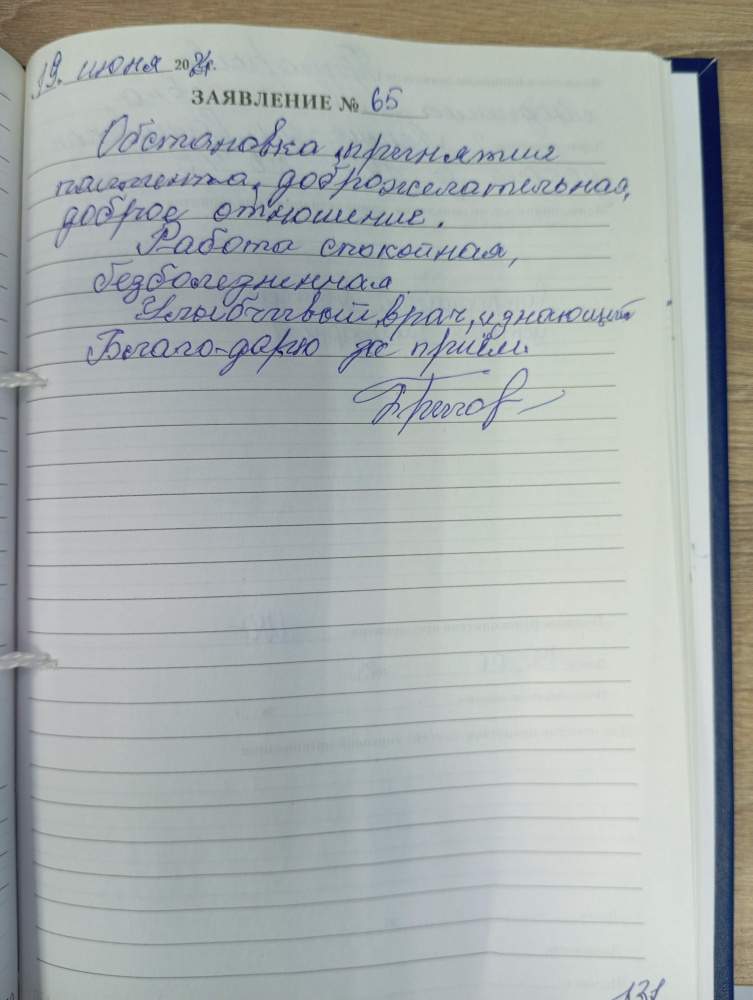 19. июня 2024г.
ЗАЯВЛЕНИЕ № 65
Обстановка, принятия
пациента, доброжелательная,
доброе отношение.
Работа спокойная,
безболезненная.
Улыбчивый, врач, знающий
Благо-дарю за приём.
131